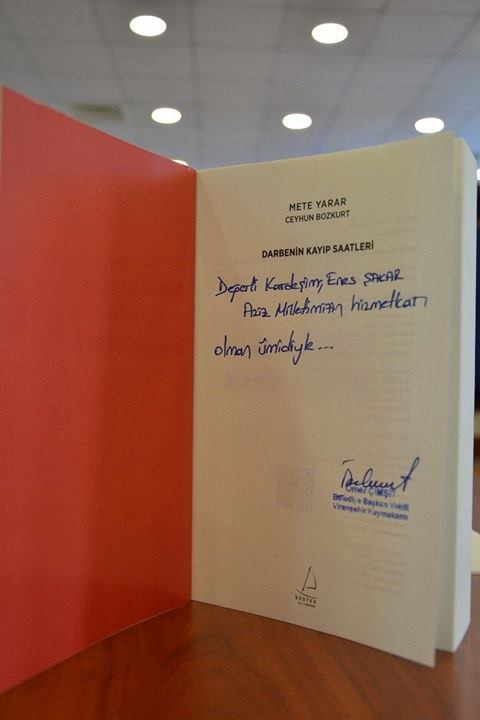 METE YARAR
CEYHUN BOZKURT
DARBENİN KAYIP SAATLERİ
Değerli Kardeşim, Enes ŞAKAR
Aziz Milletimizin hizmetkarı
olman ümidiyle...
Ömer ÇİMŞİT
Belediye Başkan Vekili
Viranşehir Kaymakamı
DESTEK